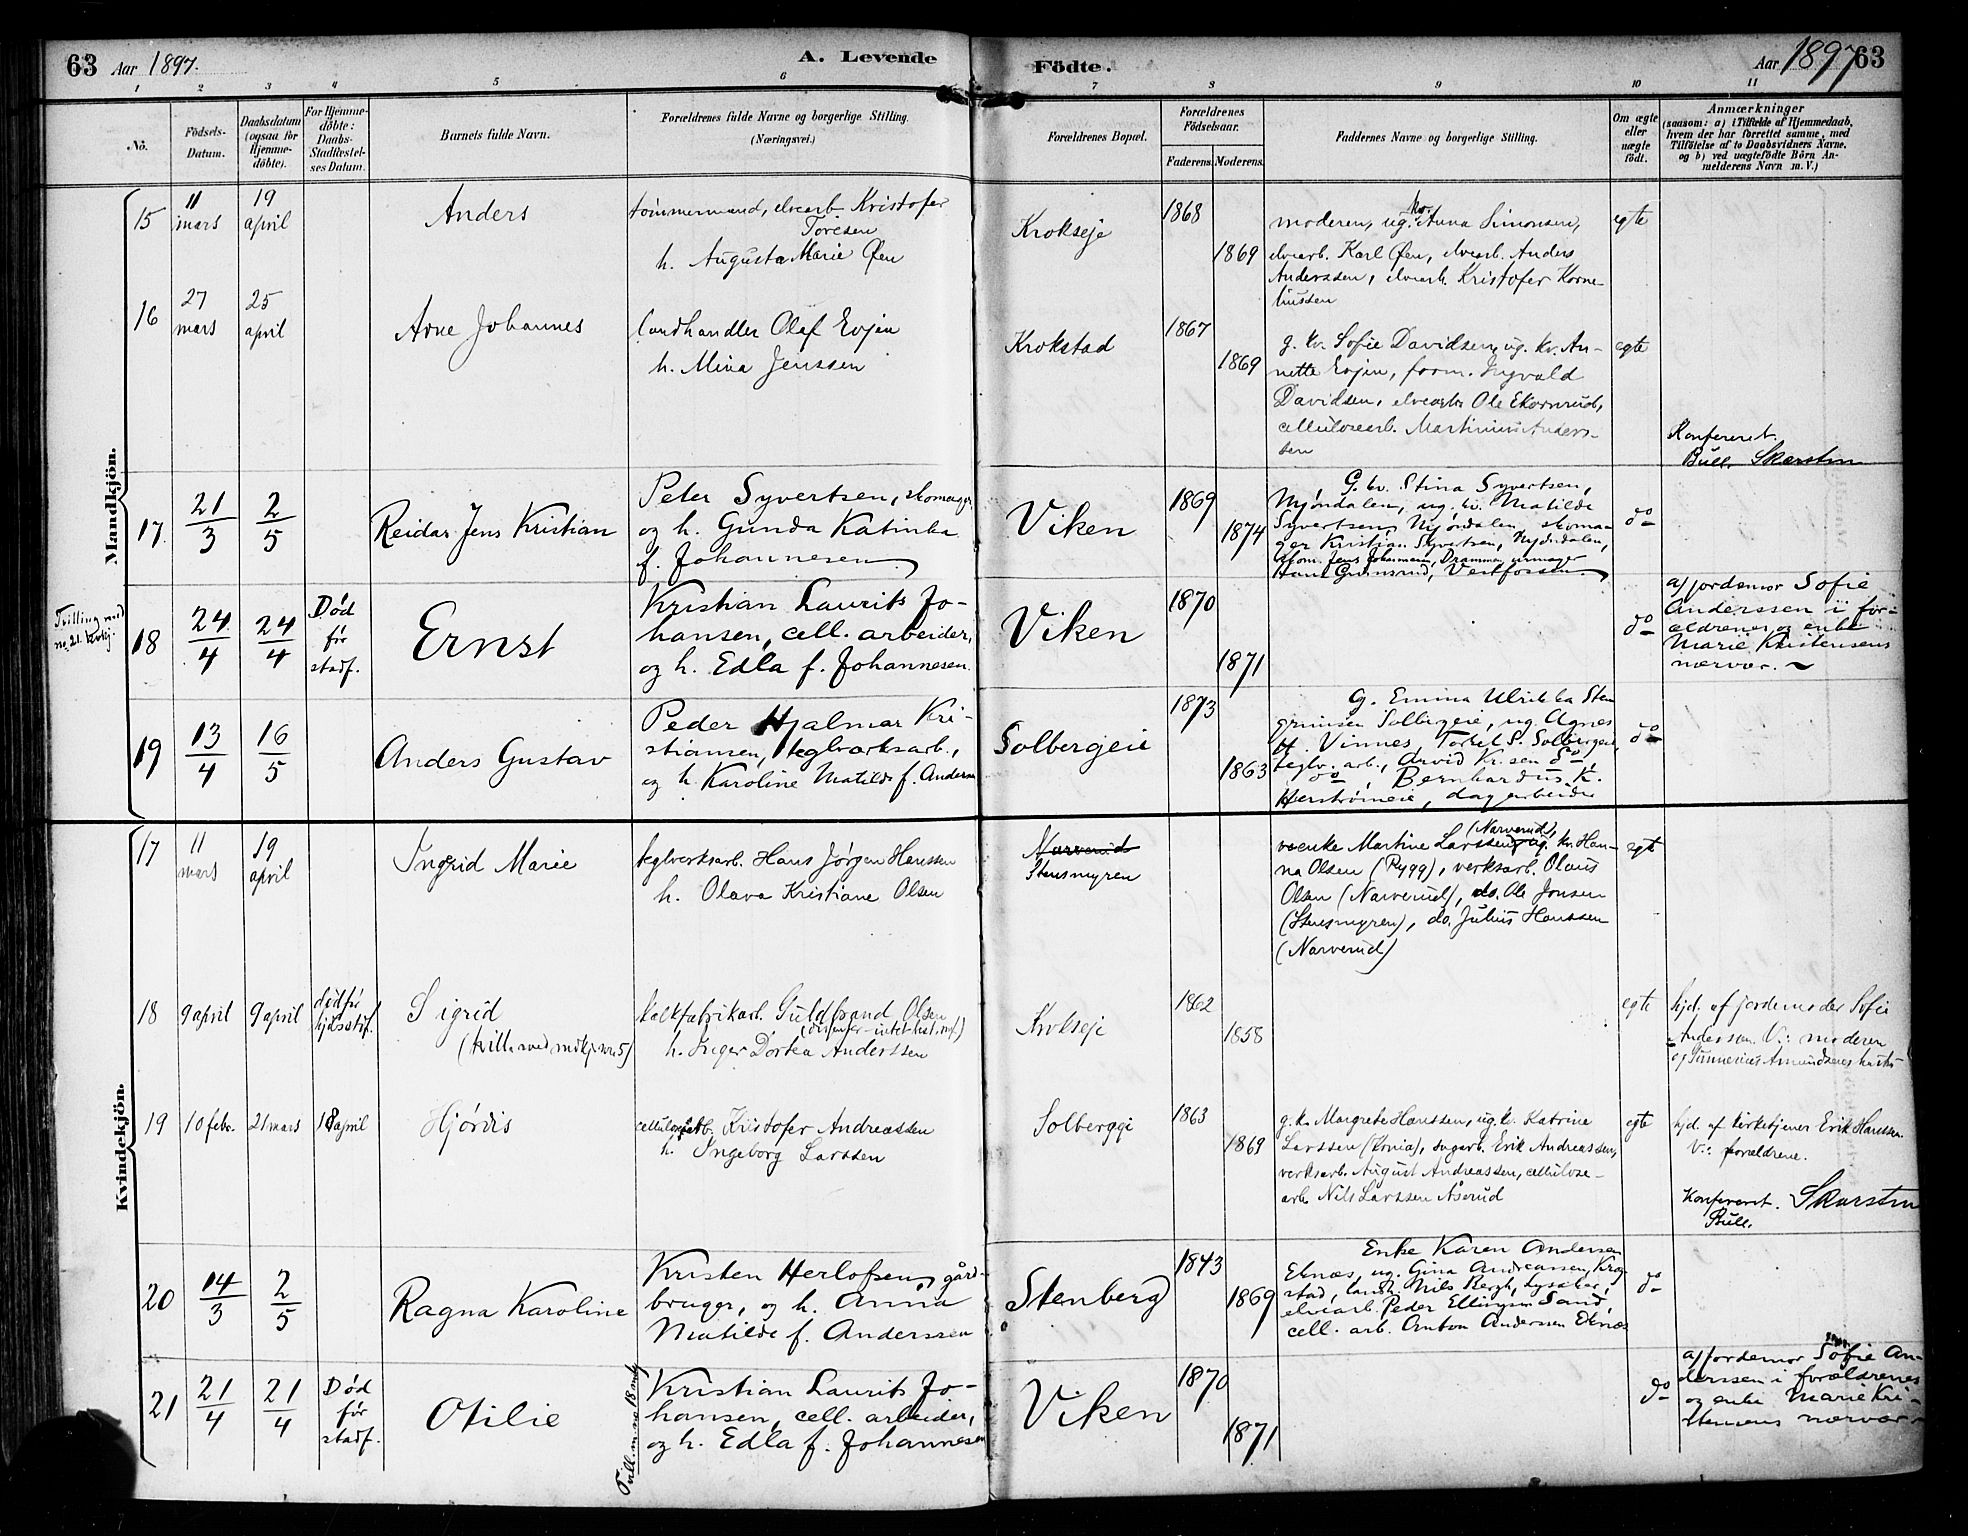 63 Aar 1897. A. Levende
Födte. Aar 1897 63
1 2 3 4 5 6 7 8 9 10 11
No.
Födsels-
Datum.
Daabsdatum
(ogsaa for
Hjemme-
döbte).
For Hjemme-
döbte:
Daabs-
Stadfæstel-
ses Datum.
Barnets fulde Navn.
Forældrenes fulde Navne og borgerlige Stilling.
(Næringsvei.)
Forældrenes Bopæl.
Forældrenes
Födselsaar.
Faderens. Moderens.
Faddernes Navne og borgerlige Stilling.
Om ægte
eller
uægte
födt.
Anmærkninger
(saasom: a) i Tilfælde af Hjemmedaab,
hvem der har forrettet samme, med
Tilföielse af to Daabsvidners Navne,
og b) ved uægtefödte Börn An-
melderens Navn m. V.)
Mandkjön.
15
11
mars
19
april
Anders
tömmermand, elvearb Kristofer
Toresen
h. Augusta Marie Øen
Krokseje
1868
1869
moderen, ug. kv. Anna Simonsen,
elvearb. Karl Øen, elvearb. Anders
Anderssen, elvearb. Kristofer Korne-
liussen
egte
16
27
mars
25
april
Arne Johannes
landhandler Olaf Evjen
h. Mina Jenssen
Krokstad
1867
1869
g. kv. Sofie Davidsen, ug. kv. An-
nette Evjen, form. Ingvald
Davidsen, elvearb. Ole Ekornrud,
cellulosearb. Martinius Anders-
sen
egte
Konfereret.
Bull. Skarsten
17
21/3
2/5
Reidar Jens Kristian
Peter Syvertsen, skomager
og h. Gunda Katinka
f. Johannesen
Viken
1869
1874
G. kv. Stina Syvertsen,
Mjöndalen, ug. kv. Matilde
Syvertsen, Mjöndalen, skoma-
ger Kristian Syvertsen, Mjöndalen,
Jens Johannesen, Drammen, urmager
Hans Grimsrud, Vestfossen
do
Trilling med
no 21. kvkj.
18
24/4
24/4
Död
för
stadf.
Ernst
Kristian Laurits Jo-
hansen, cell. arbeider,
og h. Edla f. Johannesen.
Viken
1870
1871
do
af jordemor Sofie
Anderssen i for-
ældrenes og enke
Marie Kristensens
nærvær.
19
13/4
16/5
Anders Gustav
Peder Hjalmar Kri-
stiansen, teglværksarb.,
og h. Karoline Matilde f. Andersen
Solbergeie
1873
1863
G. Emma Ulrikka Sten
grimsen Solbergeie, ug. Agnes
H. Vinnes, Torkel S. Solbergeie
teglv. arb., Arvid Kr.sen do,
do, Bernhardus K.
Herströmeie, dagarbeider
do
Kvindekjön.
17
11
mars
19
april
Ingrid Marie
teglverksarb. Hans Jörgen Hanssen
h. Olava Kristiane Olsen
Narverud
Stensmyren
enke Martine Larssen (Narverud), ug. kv. Han-
na Olsen (Rygg), verksarb. Olaus
Olsen (Narverud), do. Ole Jonsen
(Stensmyren), do. Julius Hanssen
(Narverud)
egte
18
9 april
9 april
död för
hjdsstdf.
Sigrid
(tvill. med mdkj. nr. 5)
kalkfabrikarb. Guldbrand Olsen
h. Inger Dortea Anderssen
Krokseje
1862
1858
egte
hjd. af jordemoder Sofie
Anderssen. V.: moderen
og Amundsens hustr.
19
10 febr.
21 mars
18 april
Hjördis
cellulosearb. Kristofer Andreassen
h. Ingeborg Larssen
Solbergeje
1863
1869
g. k. Margrete Hanssen, ug. k. Katrine
Larssen, sagarb. Erik Andreassen,
verksarb. August Andreassen, cellulose-
arb. Nils Larssen Åserud
egte
hjd. af kirketjener Erik Hanssen.
V.: forældrene.
Konfereret. Skarsten
Bull.
20
14/3
2/5
Ragna Karoline
Kristen Herlofsen, gård-
bruger, og h. Anna
Matilde f. Anderssen
Stenberg
1843
1869
Enke Karen Andersen
Eknæs, ug. Gina Andreassen, Krog-
stad, landh. Nils Bergh, Lysaker,
elvearb. Peder Ellingsen Sand,
cell. arb. Anton Anderssen Eknæs
do
21
21/4
21/4
Död
för
stadf.
Otilie
Trill. m. no 18 mkj
Kristian Laurits Jo-
hansen, cell. arbeider,
og h. Edla f. Johannesen
Viken
1870
1871
do
af jordemor Sofie An-
derssen i forældrenes
og enke Marie Kri-
stensens nærvær